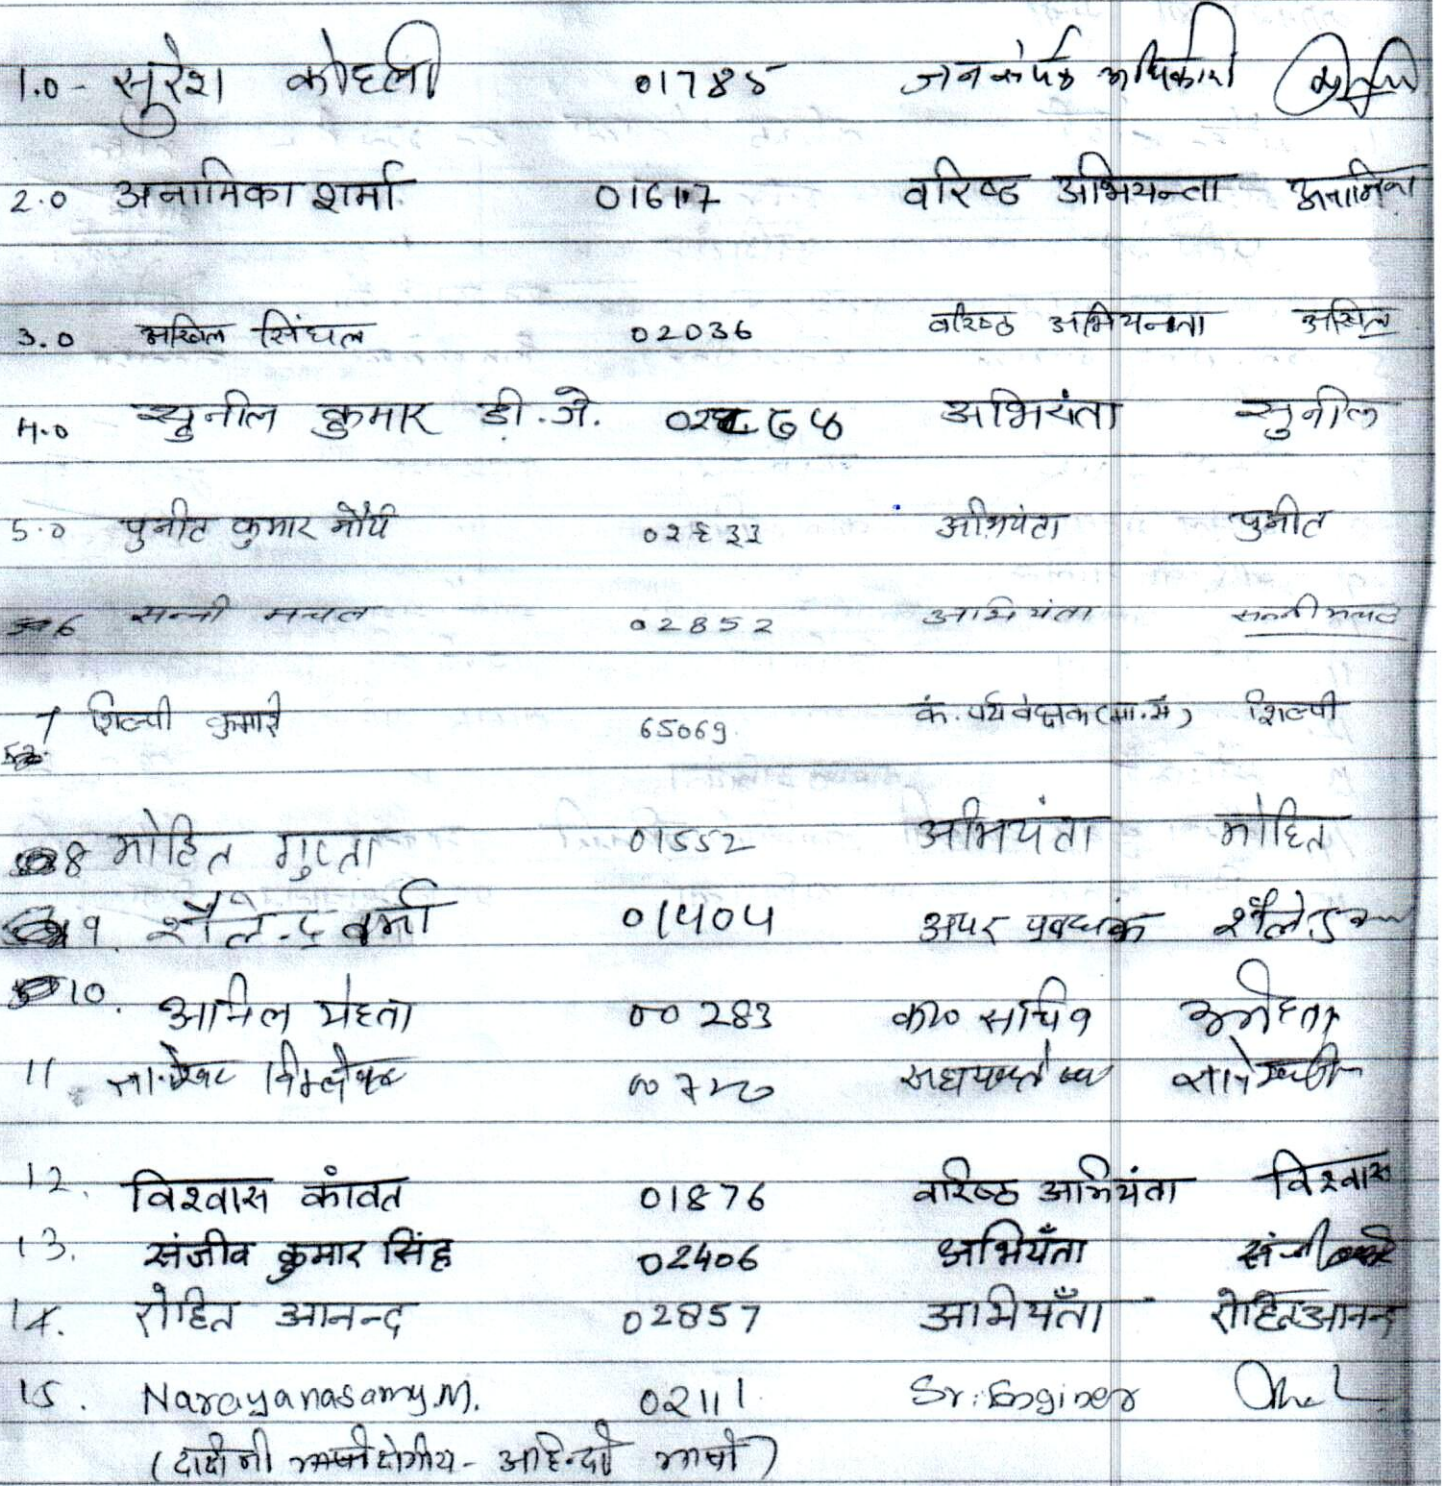 1.0 - सुरेश कोहली 01785 जनसंपर्क अधिकारी
2.0 अनामिका शर्मा 01617 वरिष्ठ अभियन्ता अनामिका
3.0 अखिल सिंघल 02036 वरिष्ठ अभियनता अखिल
4.0 सुनील कुमार डी.जे. अभियंता सुनील
5.0 पुनीत कुमार मौर्य 02833 अभियंता पुनीत
6 सन्नी मचल 02852 अभियंता सन्नी मचल
7 शिल्पी कुमारी 65069 कं. पर्यवेक्षक (मा.सं) शिल्पी
8 मोहित गुप्ता 01552 अभियंता मोहित
9. शैलेन्द्र वर्मा 01404 अपर प्रबन्धक
10. अनिल मेहता 00283 क० सचिव
11
12. विश्वास कांवत 01876 वरिष्ठ अभियंता विश्वास
13. संजीव कुमार सिंह 02406 अभियँता
14. रोहित आनन्द 02857 अभियँता रोहित आनन्द
15. Narayanasamy.M. 02111 Sr: Enginer